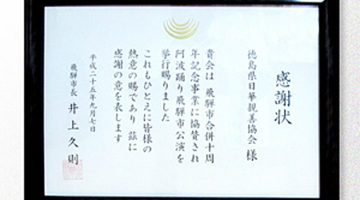 感謝状
徳島県日華親善協会 様
貴会は 飛騨市合併十周
年記念事業に協賛され
阿波踊り飛騨市公演を
挙行賜りました
これもひとえに皆様の
熱意の賜であり 茲に
感謝の意を表します
平成二十五年九月七日
飛騨市長 井上久則